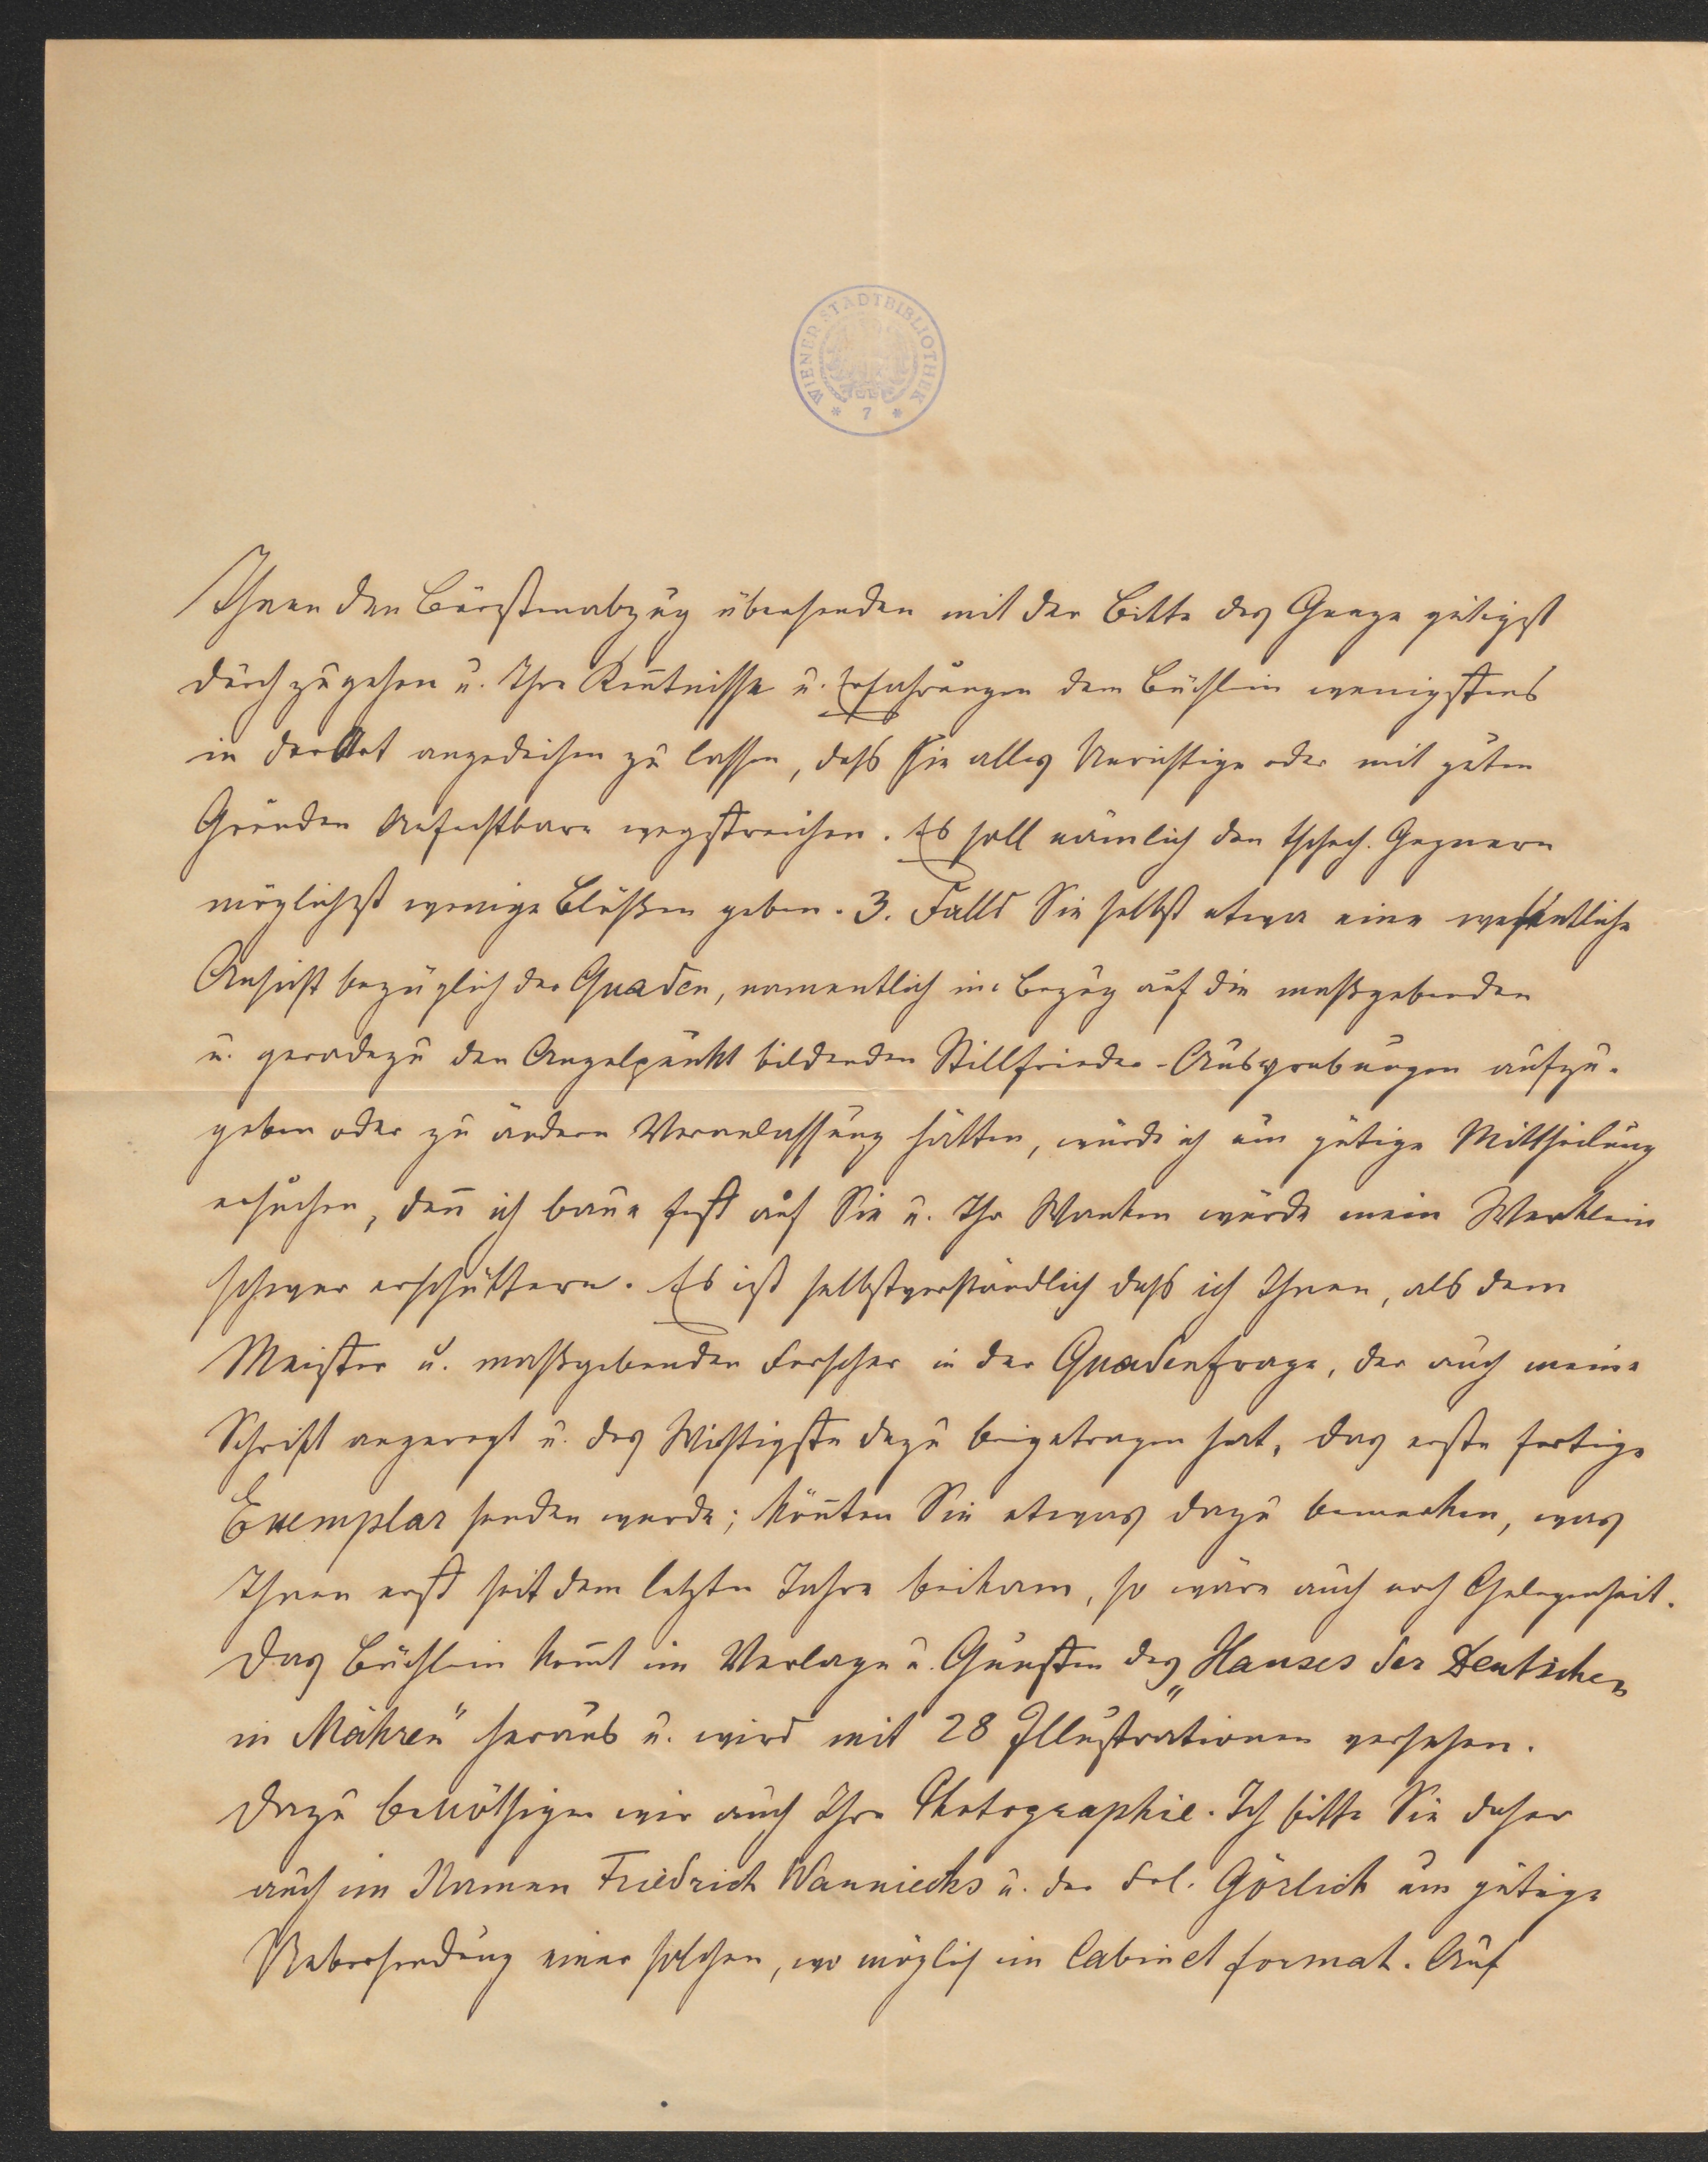 WIENER STADTBIBLIOTHEK
* 7 *
Ihnen den Bürstenabzug übersenden mit der Bitte das Ganze gütigst
durchzugehen u. Ihre Ken̄tnisse u. Erfahrungen dem Büchlein wenigstens
in der Art angedeihen zu lassen, dass Sie alles Unrichtige oder mit guten
Gründen Anfechtbare wegstreichen. Es soll nämlich den tschech. Gegnern
möglichst wenige Blößen geben. 3. Falls Sie selbst etwa eine wesentliche
Ansicht bezüglich der Quaden, namentlich in Bezug auf die maßgebenden
u. geradezu den Angelpunkt bildenden Stillfrieder-Ausgrabungen aufzu-
geben oder zu ändern Veranlassung hätten, würde ich um gütige Mittheilung
ersuchen, den̄ ich baue fest auf Sie u. Ihr Wanken würde mein Werklein
schwer erschüttern. Es ist selbstverständlich dass ich Ihnen, als dem
Meister u. maßgebenden Forscher in der Quadenfrage, der auch meine
Schrift angeregt u. das Wichtigste dazu beigetragen hat, das erste fertige
Exemplar senden werde; kön̄ten Sie etwas dazu bemerken, was
Ihnen erst seit dem letzten Jahre beikam, so wäre auch noch Gelegenheit.
Das Büchlein kom̄t im Verlage u. Gunsten des „Hauses der Deutschen
in Mähren" heraus u. wird mit 28 Illustrationen versehen.
Dazu benöthigen wir auch Ihre Photographie. Ich bitte Sie daher
auch im Namen Friedrich Wannieks u. der Frl. Görlich um gütige
Uebersendung einer solchen, wo möglich im Cabinetformat. Auf